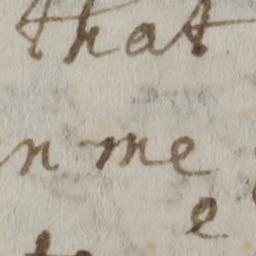 that
n me
e